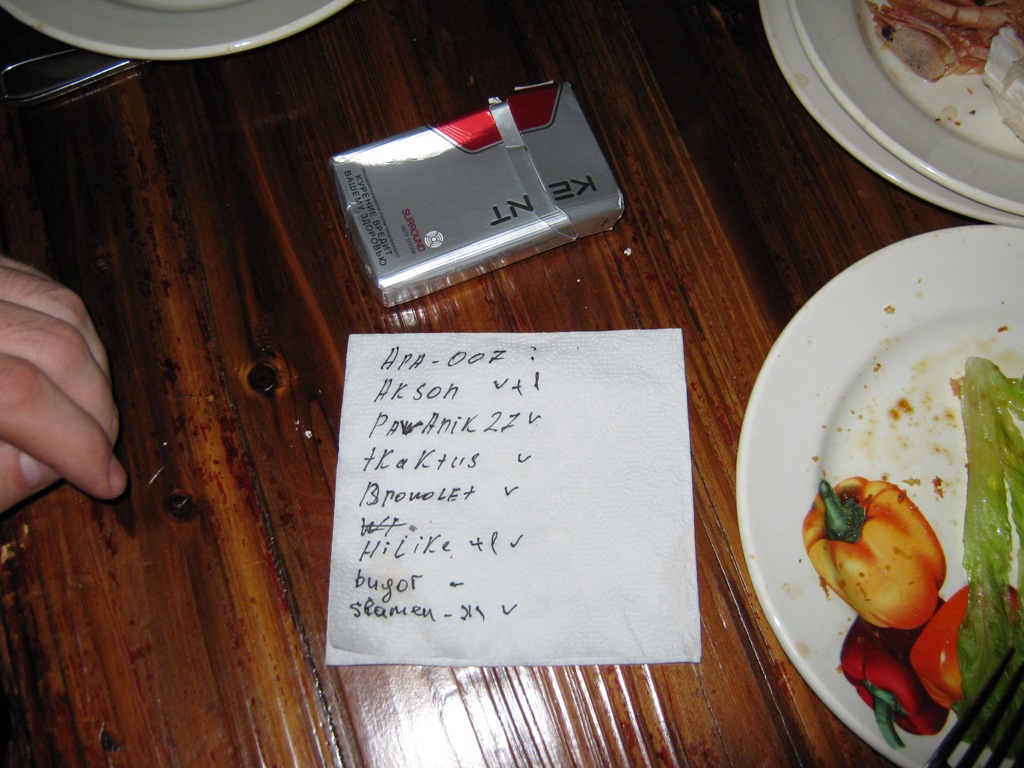 KENT
SURROUND
КУРЕНИЕ ВРЕДИТ
ВАШЕМУ ЗДОРОВЬЮ
APA-007 :
AKSON v+1
PAWAnik 27 v
tKaKtus v
BPOWOLEt v
HiLiKe +1 v
bugor -
stamen - v